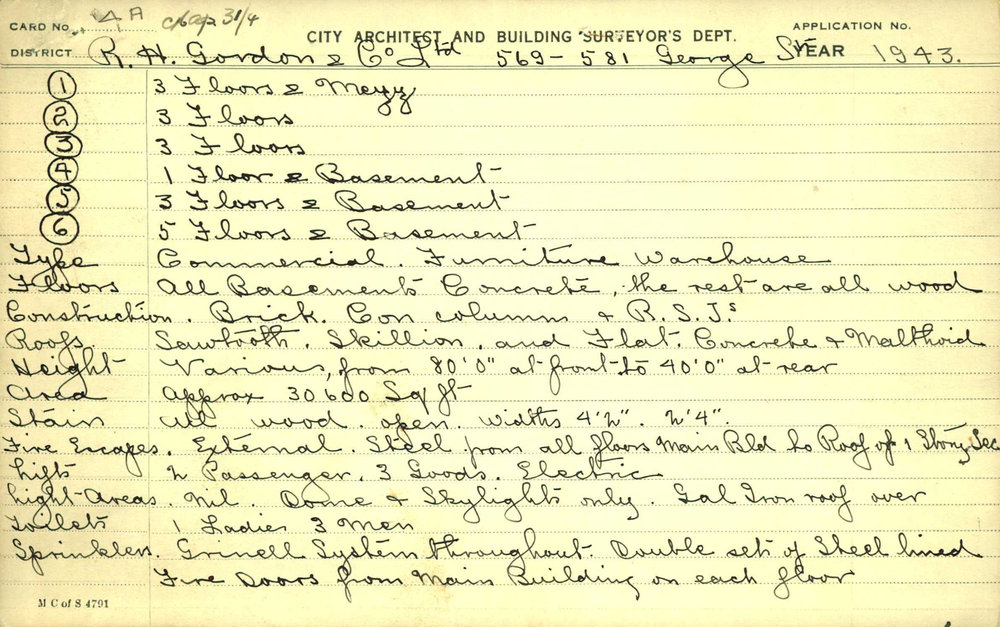 CARD No. 4A Chap 31/4 CITY ARCHITECT AND BUILDING SURVEYOR'S DEPT. APPLICATION No.
DISTRICT R. H. Gordon & Co Ltd 569-581 George St YEAR 1943.
1 3 Floors & Mezz
2 3 Floors
3 3 Floors
4 1 Floor & Basement
5 3 Floors & Basement
6 5 Floors & Basement
Type Commercial. Furniture Warehouse
Floors All Basements Concrete, the rest are all wood
Construction. Brick. Con columns & R.S.J.s
Roofs Sawtooth. Skillion. and Flat. Concrete & Malthoid
Height Various, from 80'0" at front to 40'0" at rear
Area Approx 30600 Sq ft
Stairs All wood. open. widths 4'2". 2'4".
Fire Escapes. External. Steel from all floors Main Bld to Roof of 1 Story Sec
Lifts 2 Passenger. 3 Goods. Electric
Light Areas. Nil. Dome & Skylights only. Gal Iron roof over
Toilets 1 Ladies 3 Men
Sprinklers. Grinell System throughout. Double sets of Steel lined
Fire Doors from Main Building on each floor
M C of S 4791